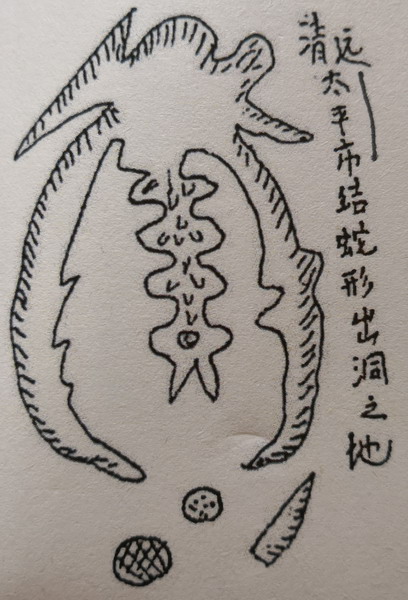 清远太平市結蛇形出洞之地